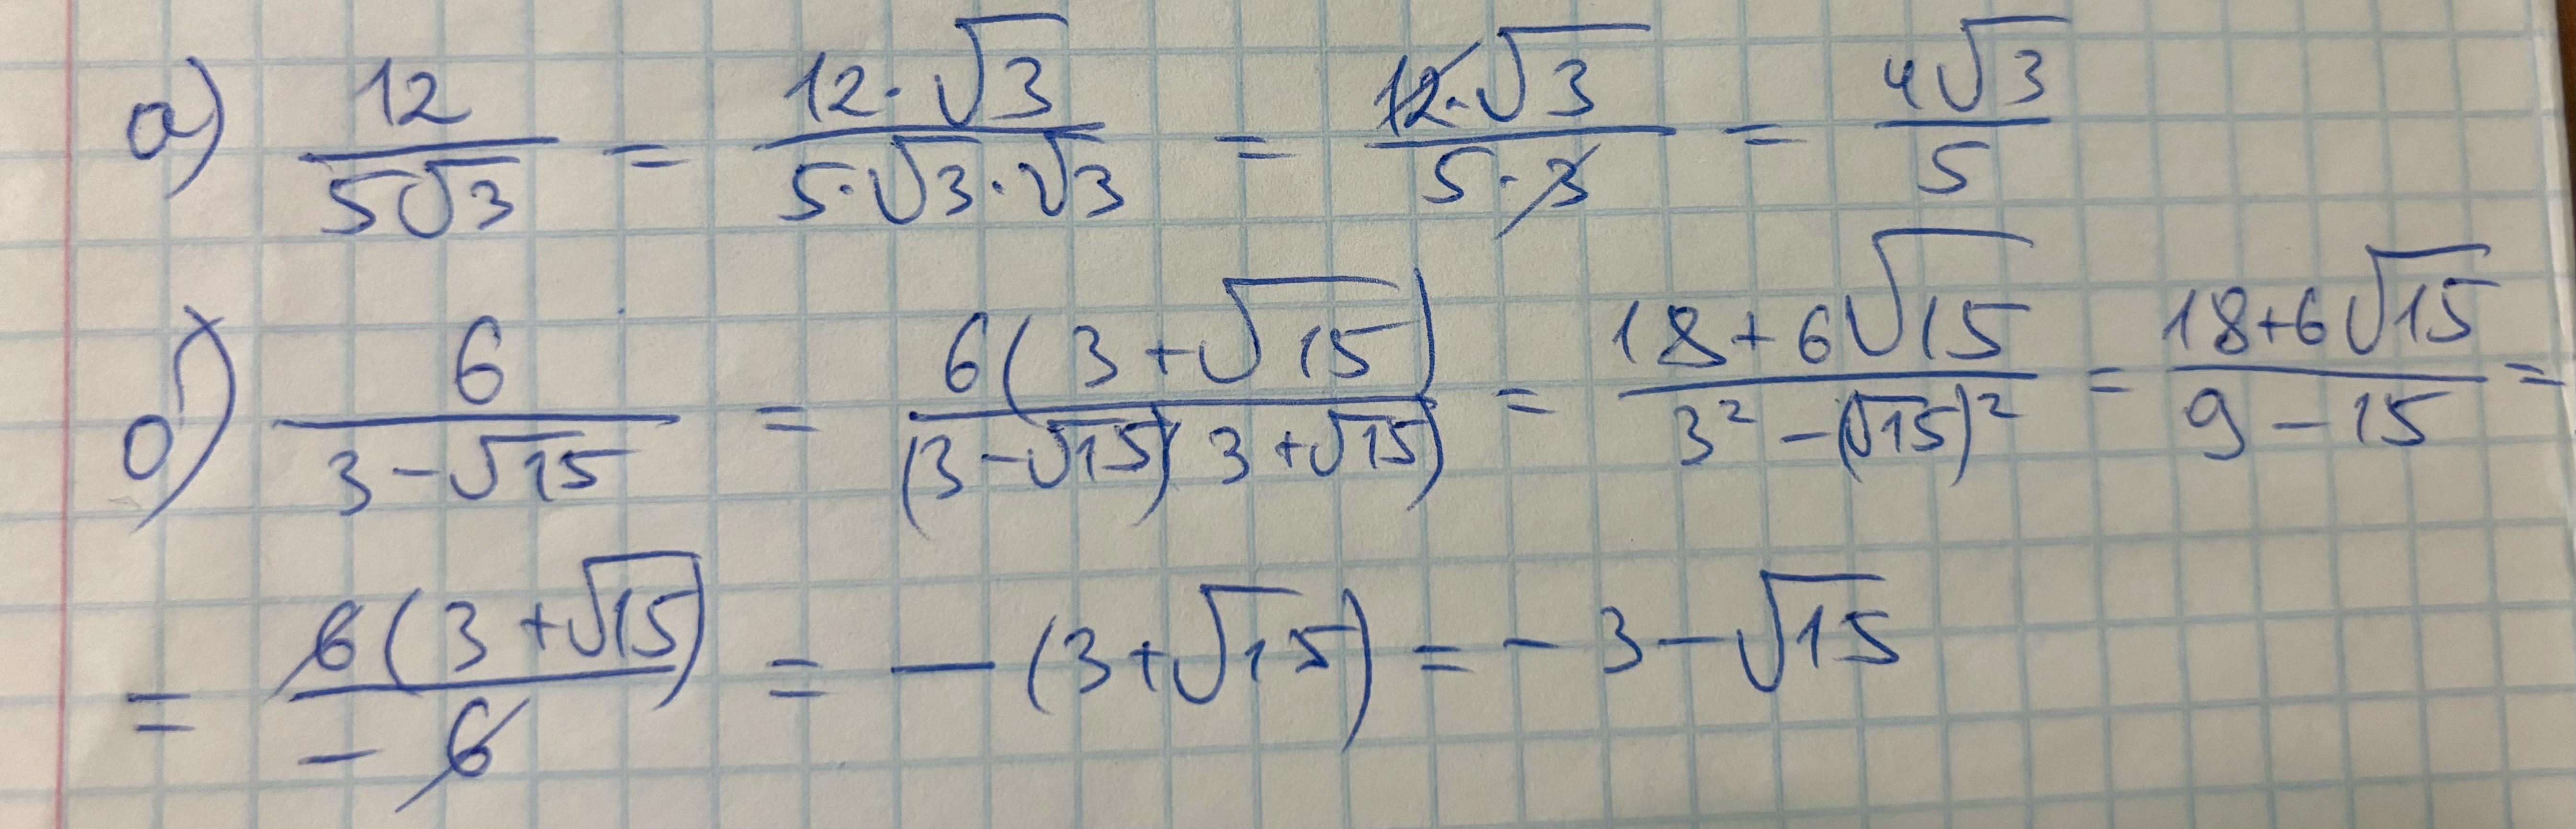 а) 12/(5√3) = (12·√3)/(5·√3·√3) = (12·√3)/(5·3) = (4√3)/5
б) 6/(3-√15) = (6(3+√15))/((3-√15)(3+√15)) = (18+6√15)/(3²-(√15)²) = (18+6√15)/(9-15) =
= (6(3+√15))/(-6) = -(3+√15) = -3-√15